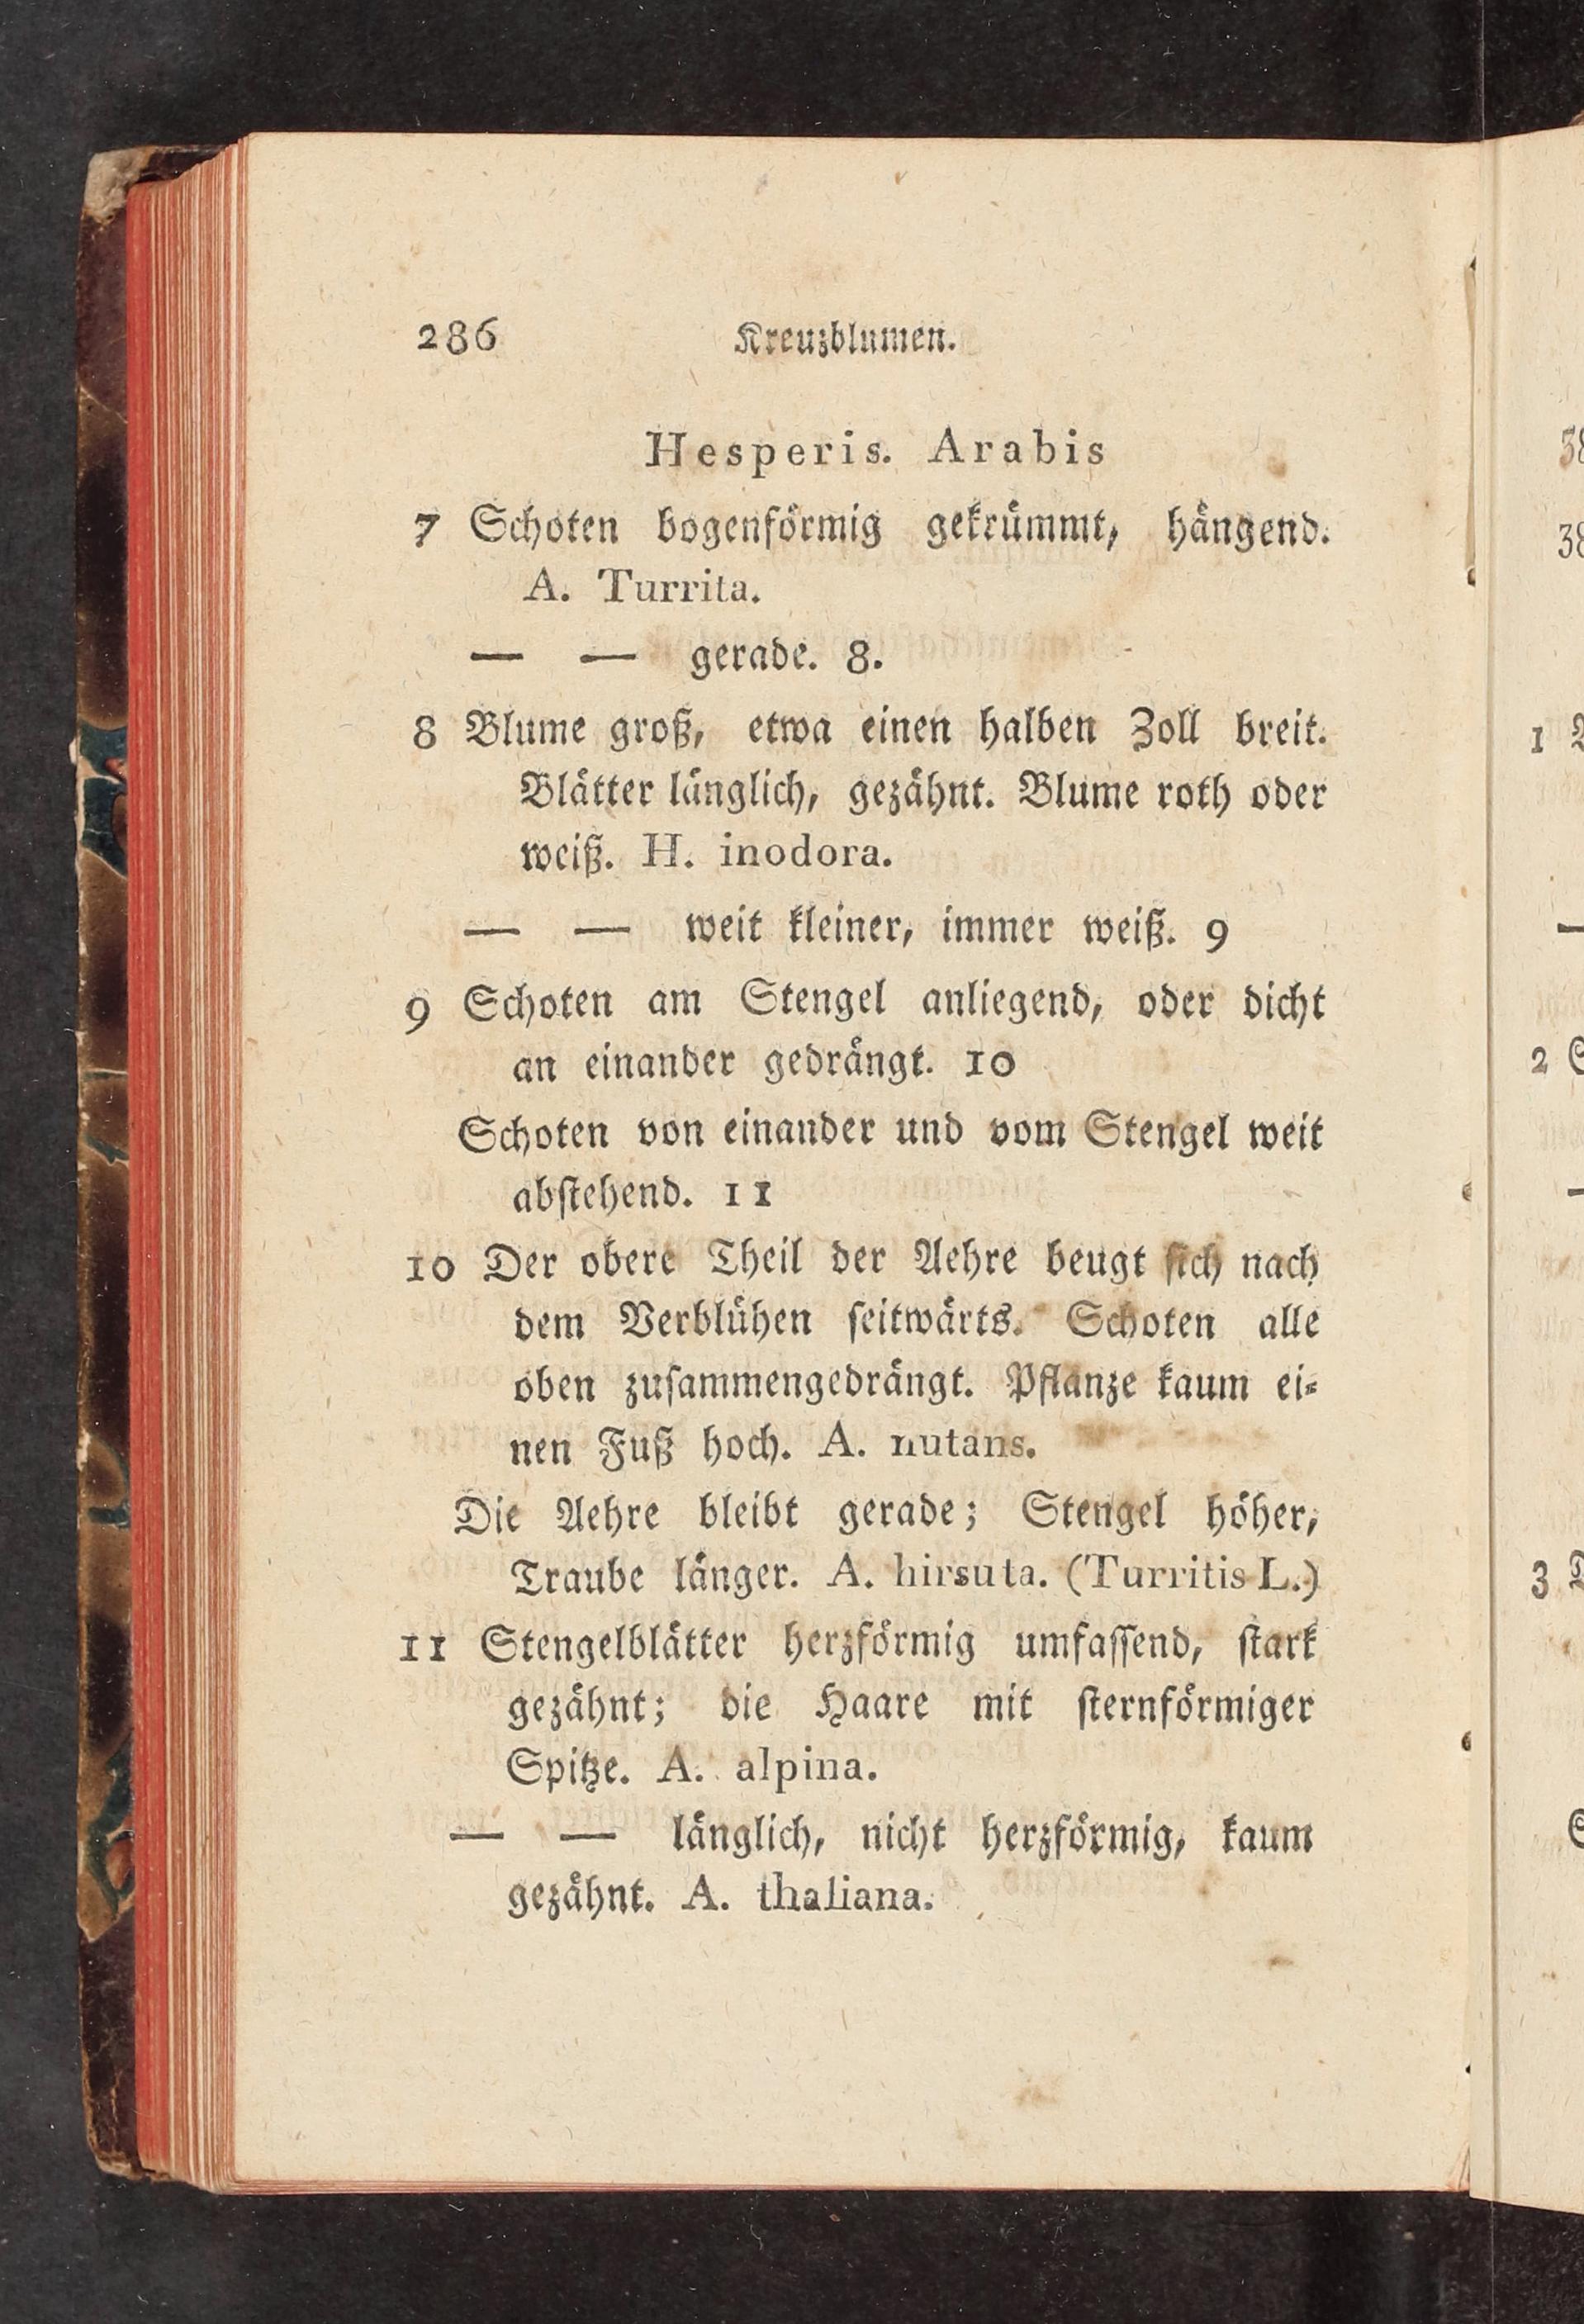 286 Kreuzblumen.
Hesperis. Arabis
7 Schoten bogenförmig gekrümmt, hängend.
A. Turrita.
— — gerade. 8.
8 Blume groß, etwa einen halben Zoll breit.
Blätter länglich, gezähnt. Blume roth oder
weiß. H. inodora.
— — weit kleiner, immer weiß. 9
9 Schoten am Stengel anliegend, oder dicht
an einander gedrängt. 10
Schoten von einander und vom Stengel weit
abstehend. 11
10 Der obere Theil der Aehre beugt sich nach
dem Verblühen seitwärts. Schoten alle
oben zusammengedrängt. Pflanze kaum ei-
nen Fuß hoch. A. nutans.
Die Aehre bleibt gerade; Stengel höher,
Traube länger. A. hirsuta. (Turritis L.)
11 Stengelblätter herzförmig umfassend, stark
gezähnt; die Haare mit sternförmiger
Spitze. A. alpina.
— — länglich, nicht herzförmig, kaum
gezähnt. A. thaliana.
38
38
1
2
3